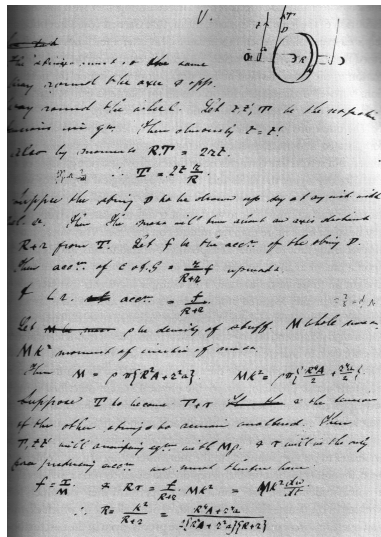 V.
The strings must go the same
way round the axle & opp.
way round the wheel. Let t t', T be the respective
tensions in eqm. Then obviously t = t'.
also by moments RT = 2rt.
∴ T = 2t r/R
Suppose the string D to be drawn up say at any inst with
vel. v. Then the mass will turn about an axis distant
R+r from T. Let f be the accn. of the string D.
Then accn. of C of G = r/R+r f upwards
& accn. = f/R+r
Let ρ be density of stuff. M whole mass
Mk² moment of inertia of mass.
Then M = ρπ{R²A + r²a}. Mk² = ρπ{R⁴A/2 + r⁴a/2}
Suppose T to become T+τ & the tensions
of the other strings to remain unaltered. Then
T, t t' will be in eqm. with Mg. & τ will be the only
force producing accn. we must therefore have
f = τ/M & Rτ = f/R+r Mk² = Mk² dω/dt
∴ R = k²/R+r = R⁴A + r⁴a / 2{R²A + r²a}{R+r}